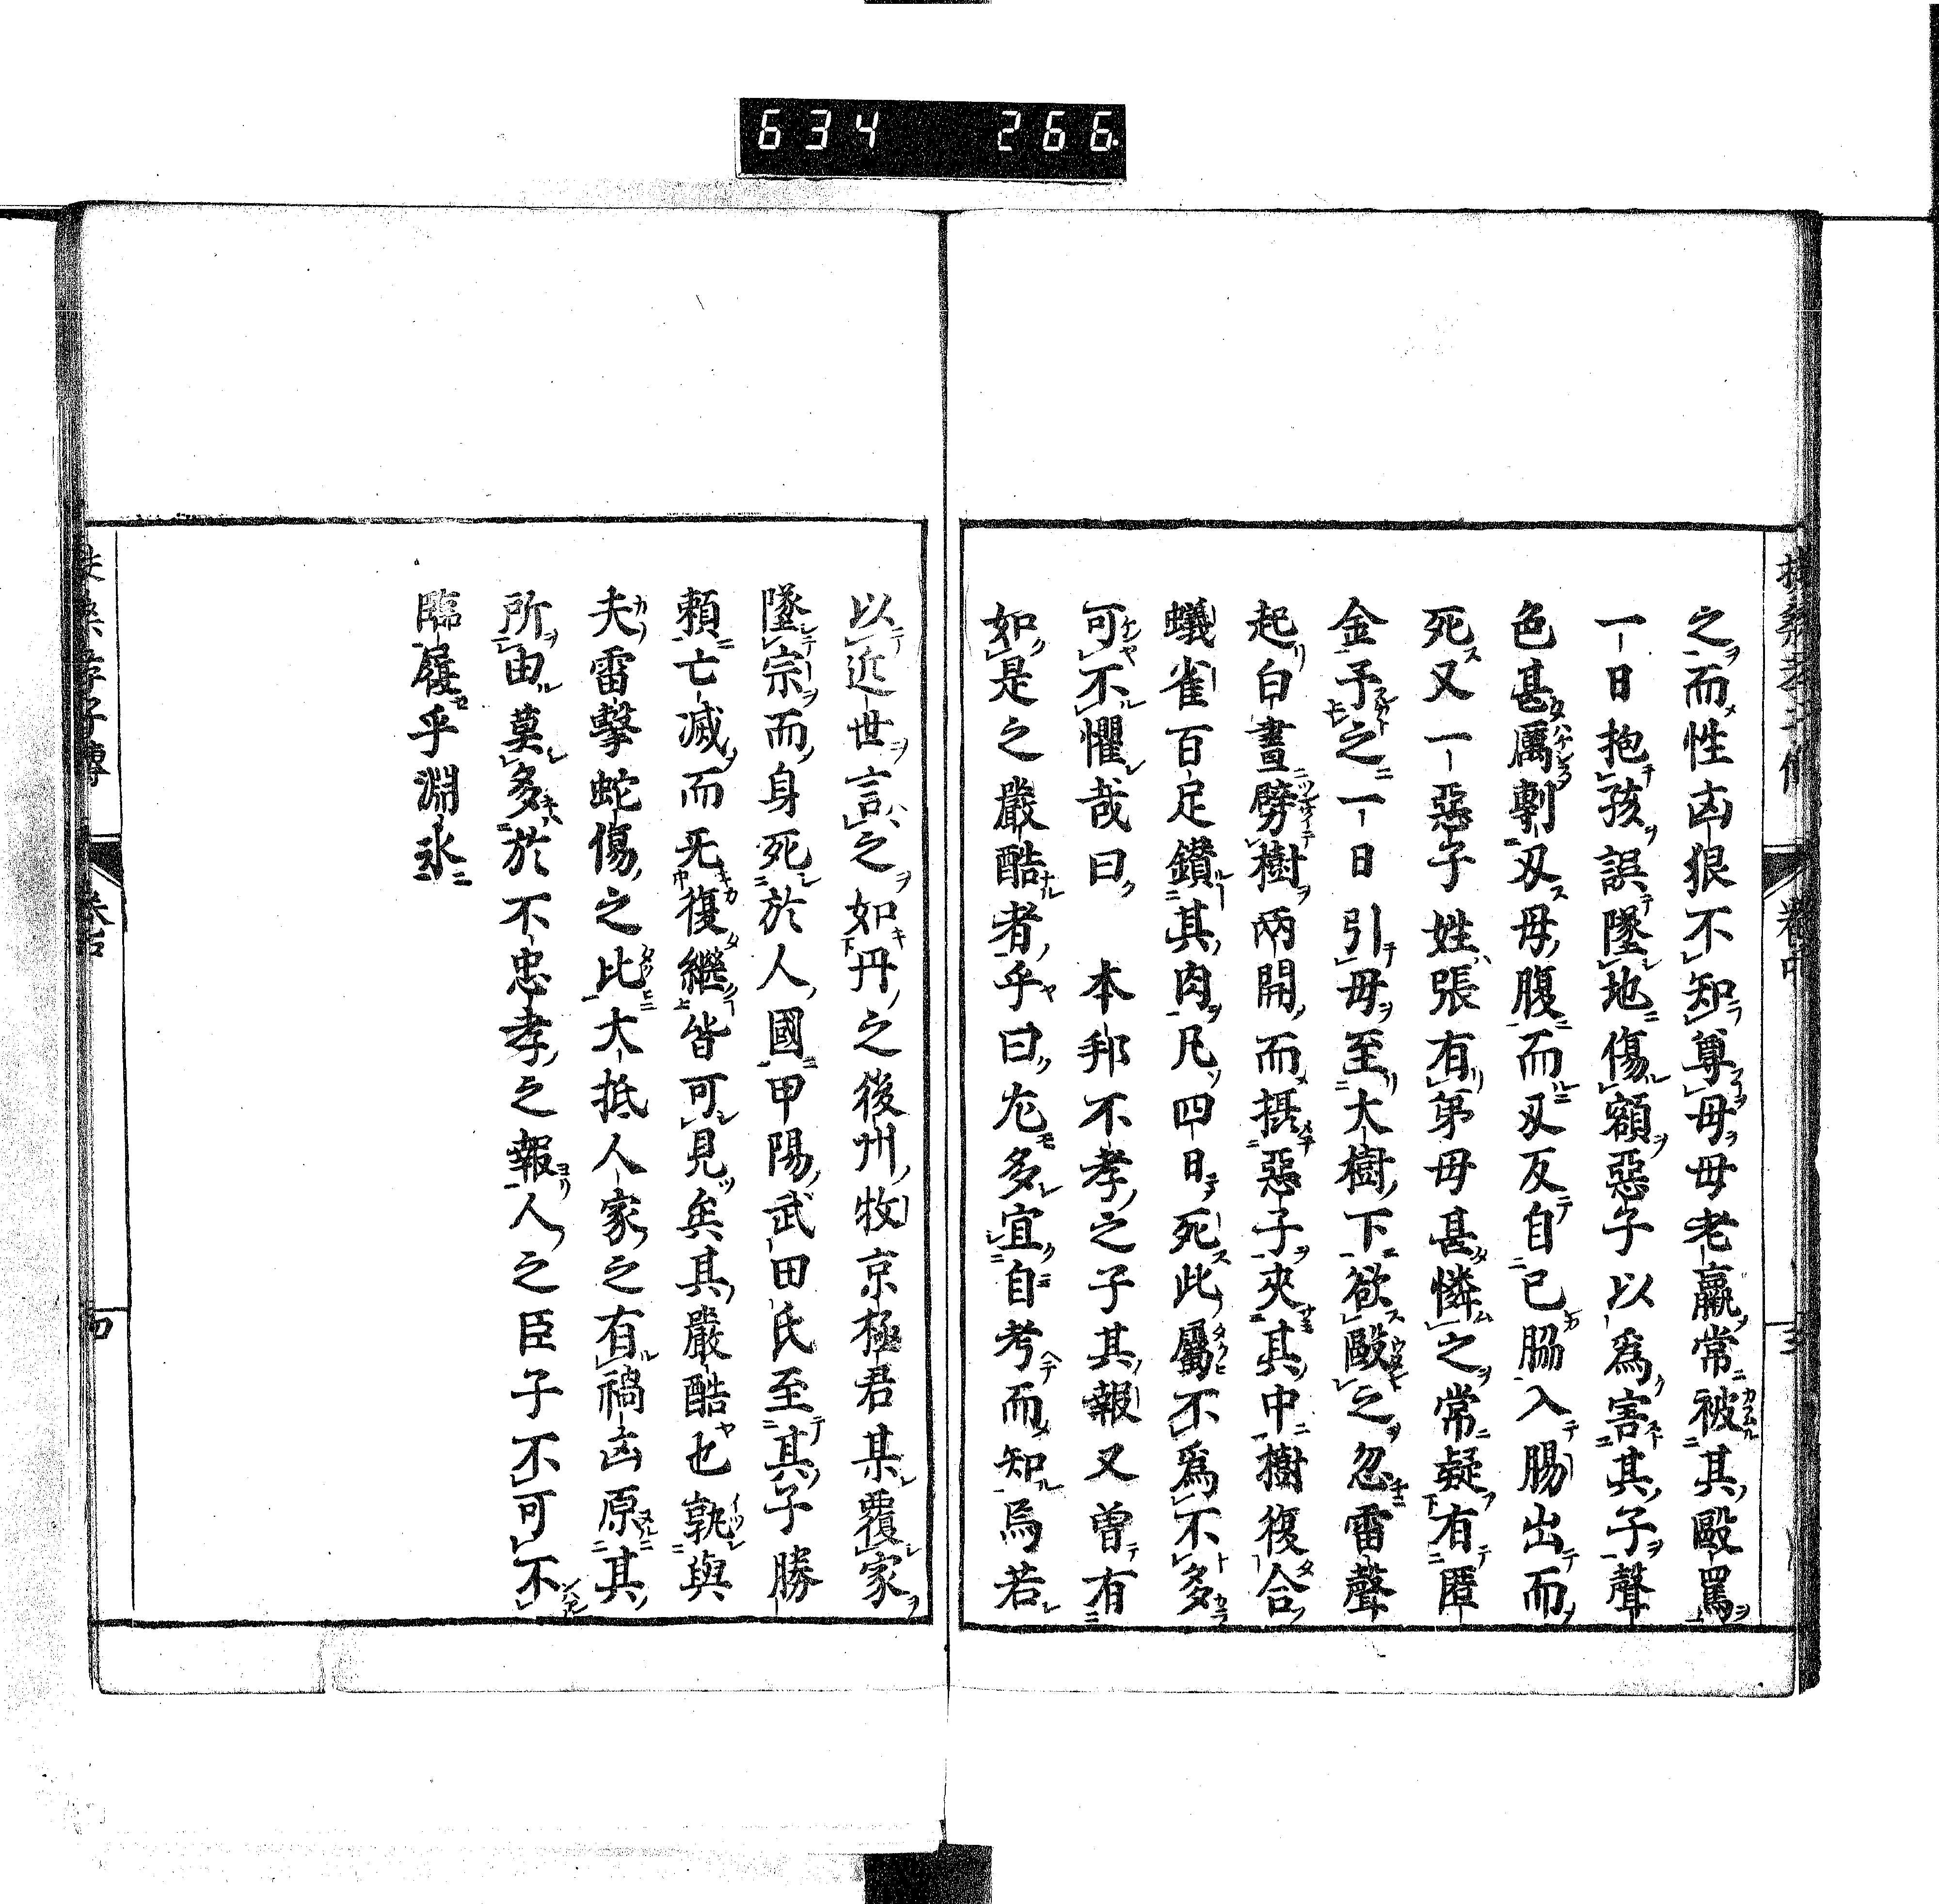 634 266
之而性凶狠不知尊母母老羸常被其毆罵
一日抱孩誤墜地傷額惡子以爲害其子聲
色甚厲剚刃母腹而刃反自己脇入腸出而
死又一惡子姓張有弟母甚憐之常疑有匿
金予之一日引母至大樹下欲毆之忽雷聲
起白晝劈樹兩開而摂惡子夾其中樹復合
蟻雀百足鑚其肉凡四日死此屬不爲不多
可不懼哉曰本邦不孝之子其報又曽有
如是之嚴酷者乎曰尤多宜自考而知焉若
以近世言之如丹之後州牧京極君某覆家
墜宗而身死於人國甲陽武田氏至其子勝
頼亡滅而无復繼皆可見矣其嚴酷也孰與
夫雷擊蛇傷之比大抵人家之有禍凶原其
所由莫多於不忠孝之報人之臣子不可不
臨履乎淵氷
孝子傳